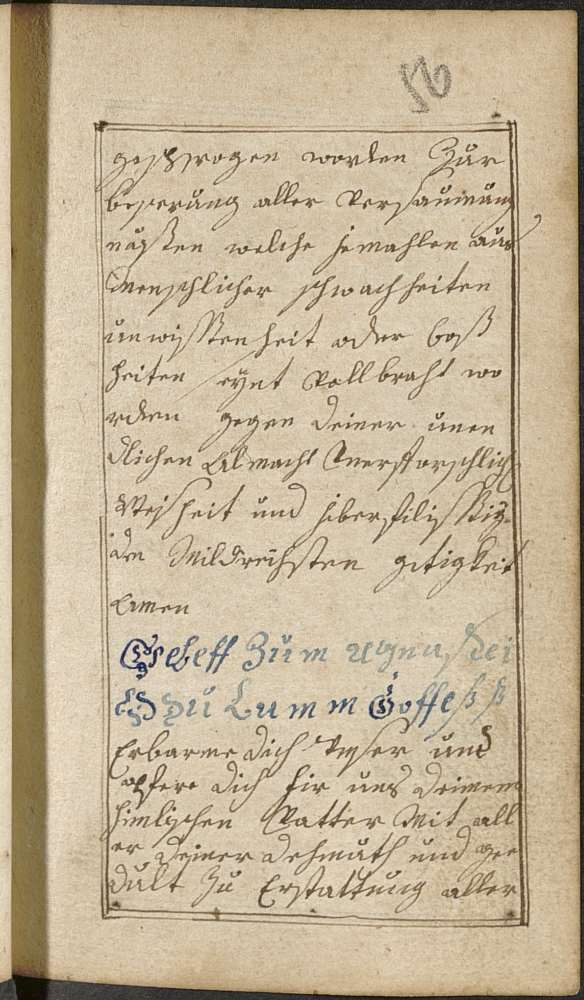 56
gesprogen worden Zur
beserung aller Versaumung
nüsten welche jemahlen aus
menschlicher schwachheiten
unwissenheit oder boß
heiten seynt Vollbracht wo
rden gegen deiner unen
dlichen Almacht Unerforschlich
Weisheit und
den Mildreichsten gitigkeit
Amen
Gebett Zum Agnus dei
O du Lamm Gottess
Erbarme dich Unser und
opfere dich fir uns deinem
himlischen Vatter Mit all
er deiner dehmuth und ge
dult Zu Erstattung aller